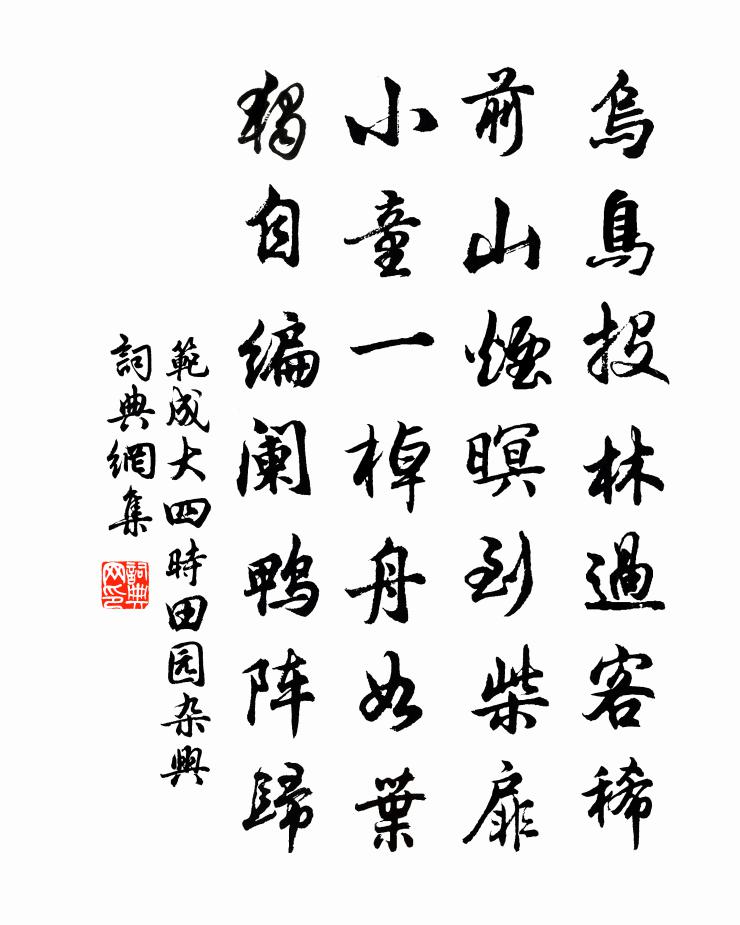 烏鳥投林過客稀
前山煙暝到柴扉
小童一棹舟如葉
獨自編闌鴨阵歸
範成大四時田园杂興
詞典網集
詞典网印